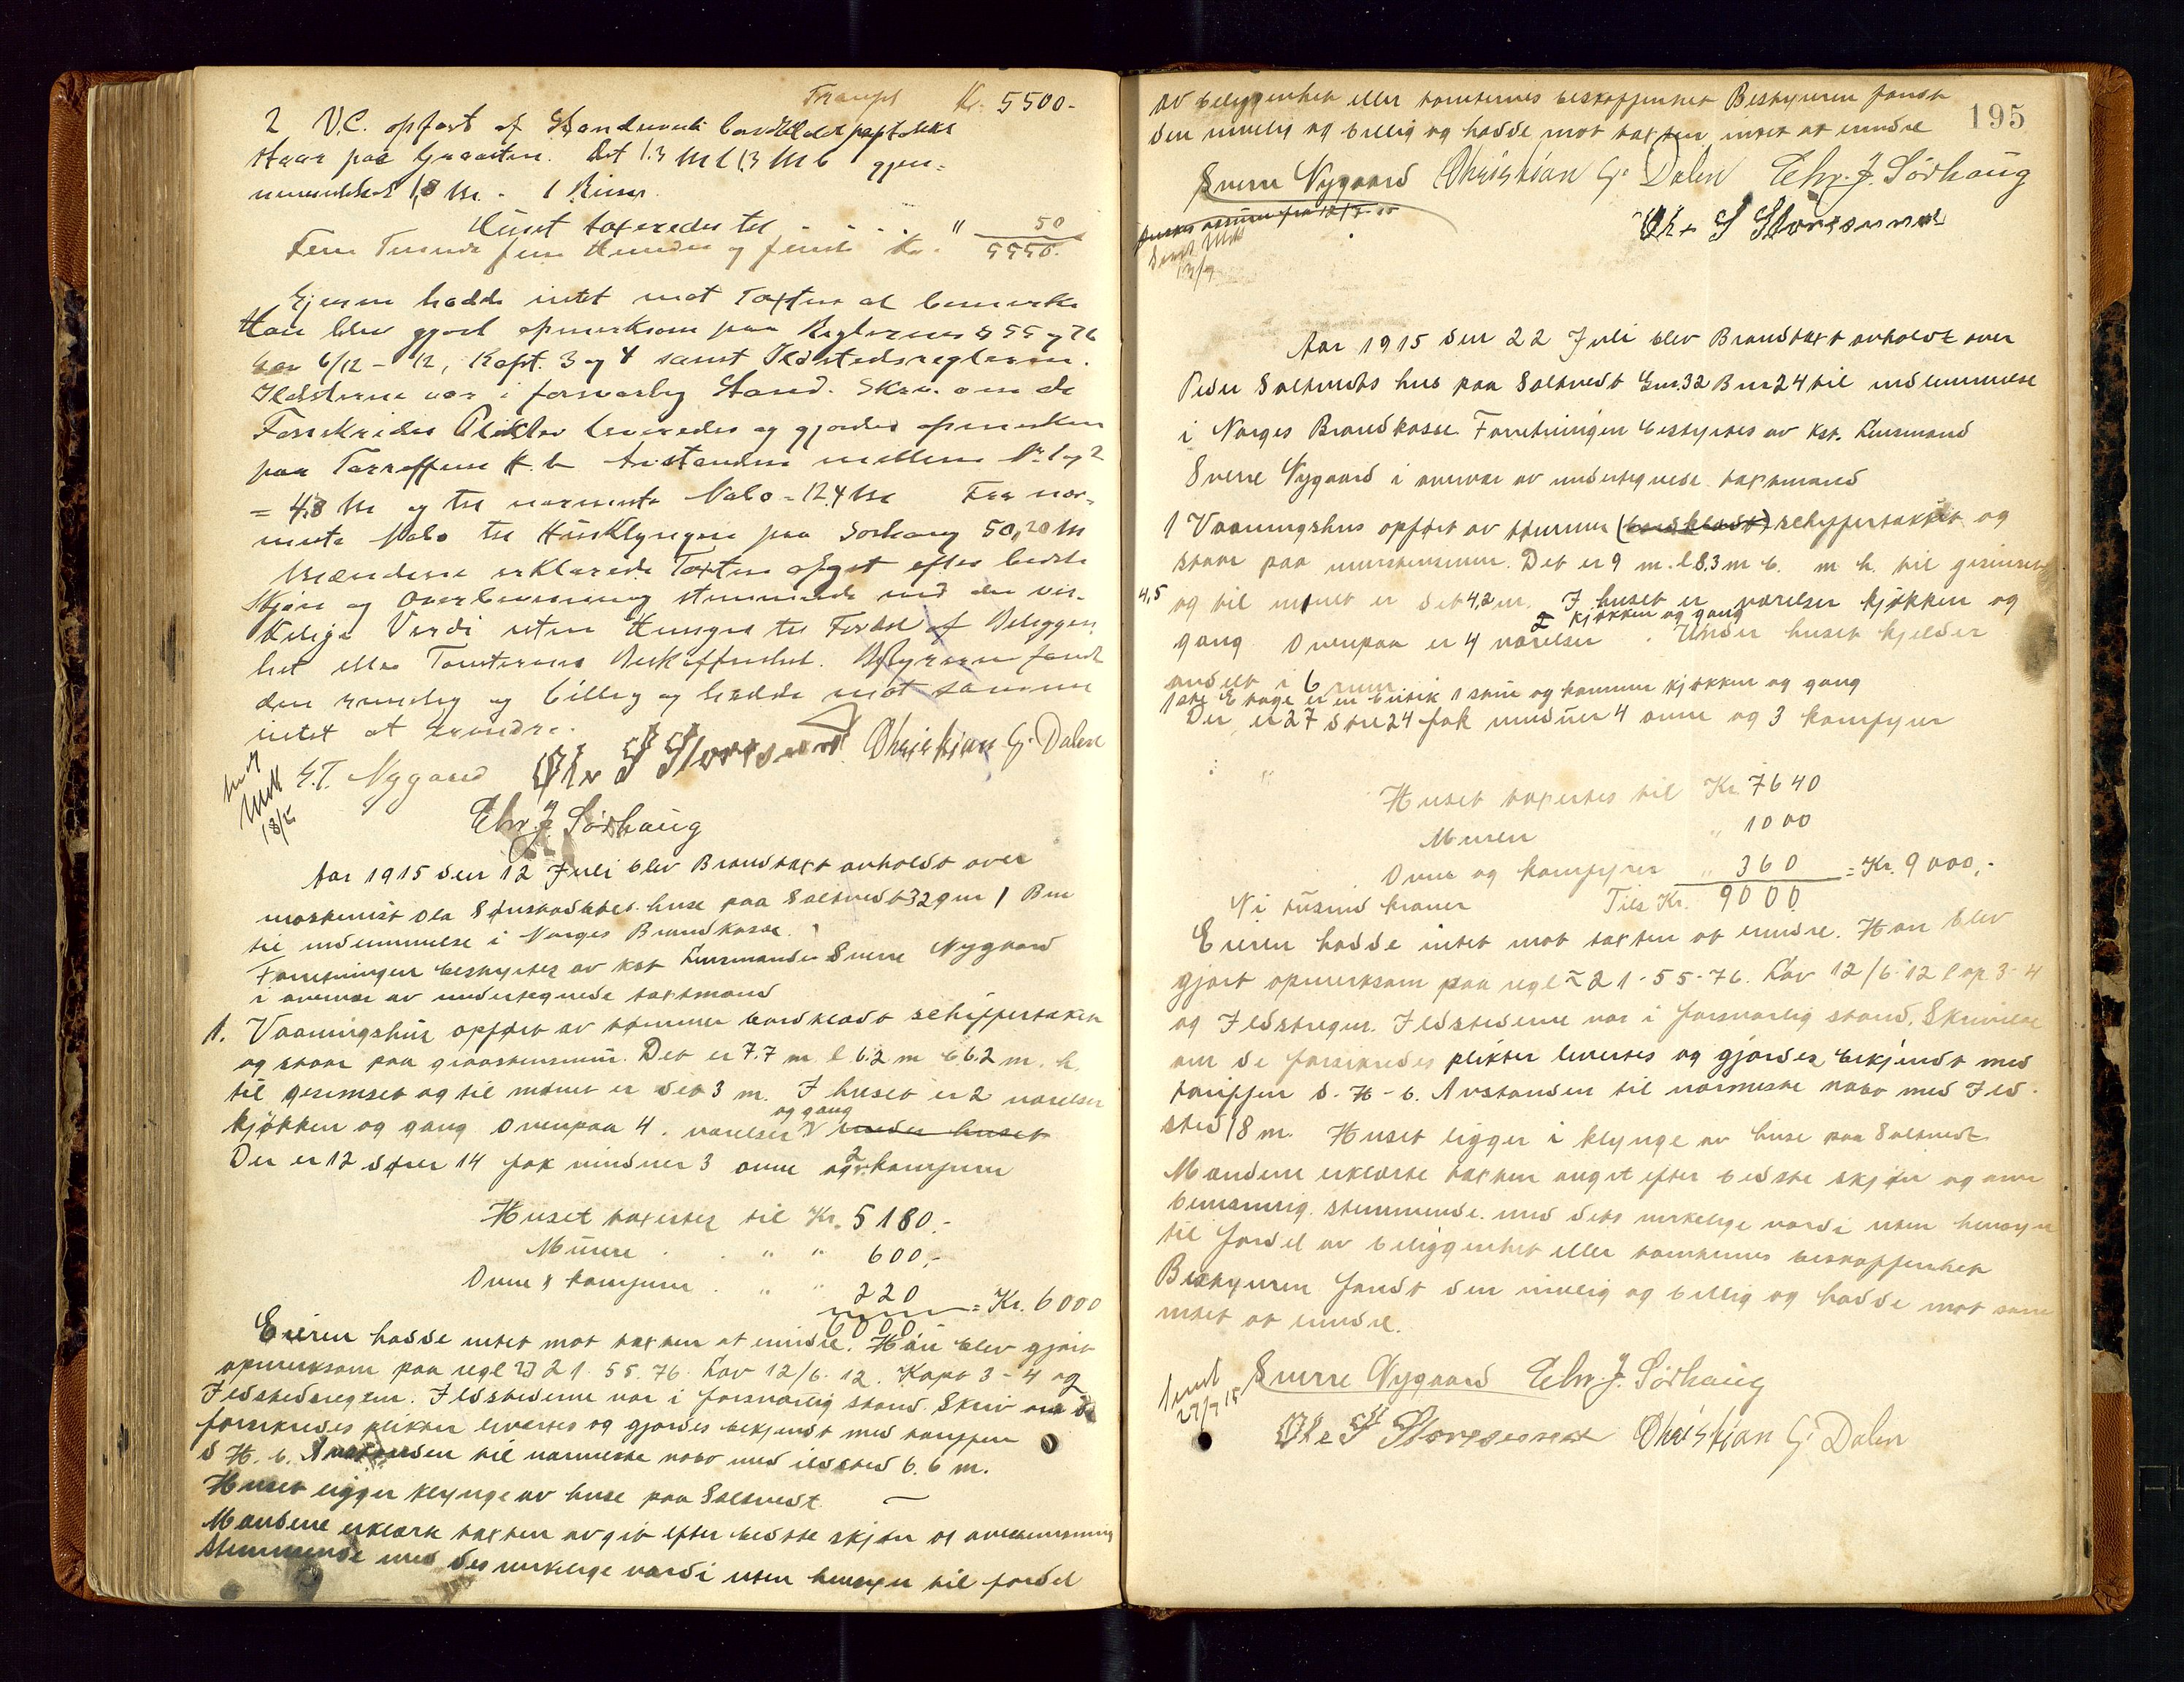 Transpt Kr. 5500.-
2 V.C. opført af Standværk bordklædt paptække
staar paa Graasten. Det 1.3 M l 1.3 M b gjen-
nemsnitshøi 1,8 M. - 1 Rum.
Huset taxeredes til . . . . " 50
Fem Tusinde fem Hundre og femti Kr. 5550.
Ejeren hadde intet mot Taxten at bemerke
Han blev gjort opmerksom paa Reglernes § 55 og 76
Lov 6/12 - 12, Kapt. 3 og 4 samt Ildstedsreglerne.
Ildstederne var i forsvarlig Stand. Skriv. om de
Forsikredes Plikter leveredes og gjordes opmerksom
paa Tarreffens H. b Avstanden mellem No 1 og 2
= 4,8 M og til nærmeste Nabo = 12.4 M Fra nær-
meste Nabo til Husklyngen paa Sørhaug 50,20 M
Mændene erklærede Taxten afgit efter bedste
Skjøn og Overbevisning stemmende med den vir-
kelige Verdi uten Hensyn til Fordel af Beliggen-
het eller Tomternes Beskaffenhet. Bestyreren fandt
den rimelig og billig og hadde mot samme
intet at erindre.
S.T. Nygaard Chr S Storesund Christian G. Dalen
Chr. J. Sørhaug
Aar 1915 den 12 Juli blev Brandtaxt avholdt over
maskinist Ola huse paa Saltvedt 32 gnr 1 Bnr
til indlemmelse i Norges Brandkasse.
Forretningen bestyrtes av kst Lensmanden Sverre Nygaard
i overvær av undertegnede taxtmænd
1. Vaaningshus opført av tømmer bordklædt schiffertækket
og staar paa graastensmur. Det er 7.7 m l 6.2 m b 6.2 m. h.
til gesimset og til mønet er det 3 m. I huset er 2 værelser
kjøkken og gang Ovenpaa 4 værelser og gang under huset
Der er 12 dører 14 fak vinduer 3 ovne og 2 komfurer
Huset taxertes til Kr. 5180.-
Murene . . " " 600,-
Ovne & komfurer . " " 220 = Kr. 6000
6000
Eieren hadde intet mot taxten at erindre. Han blev gjort
opmerksom paa regl § 21. 55. 76. Lov 12/6. 12. Kapt 3 - 4 og
Ildstedsregler. Ildstederne var i forsvarlig stand. Skriv om de
forsikredes plikter levertes og gjordes bekjendt med tariffen
d H. b. Avstanden til nærmeste nabo med ildsted 6.6 m.
Huset ligger klynge av huse paa Saltvedt
Mændene erklærte taxten avgit efter bedste skjøn og overbevisning
stemmende med des virkelige værdi uten hensyn til fordel
195
av beliggenhet eller tomternes beskaffenhet Bestyreren fandt
den rimelig og billig og hadde mot taxten intet at erindre
Sverre Nygaard Christian G. Dalen Chr. J. Sørhaug
Chr S Storesund
Sendt
13/9
Aar 1915 den 22 Juli blev Brandtaxt avholdt over
Peder Saltvedts hus paa Saltvedt Gnr. 32 Bnr 24 til indlemmelse
i Norges Brandkasse Forretningen bestyrtes av kst. Lensmand
Sverre Nygaard i overvær av undertegnede taxtmænd
1 Vaaningshus opført av tømmer (bordklædt) schiffertækket og
staar paa murstensmur. Det er 9 m. l 8.3 m b. m h. til gesimset
4,5 og til mønet er det 4,2 m. I huset er værelser kjøkken og
gang Ovenpaa er 4 værelser 2 kjøkken og gang. Under huset kjelder
indelt i 6 rum
1ste Etage er en butik 1 stue og kammer kjøkken og gang
Der er 27 døre 24 fak vinduer 4 ovne og 3 komfyrer
Huset taxertes til Kr. 7640
Muren " 1000
Ovne og komfyrer " 360 = Kr. 9000,-
Ni tusind kroner Tils Kr. 9000
Eieren hadde intet mot taxten at erindre. Han blev
gjort opmerksom paa regl § 21-55-76. Lov 12/6-12 Cap 3-4
og Ildstregler. Ildstederne var i forsvarlig stand. Skrivelse
om de forsikredes plikter levertes og gjordes bekjendt med
tariffen d. H - b. Avstanden til nærmeste nabo med Ild-
sted 18 m. Huset ligger i klynge av huse paa Saltvedt
Mændene erklærte taxten avgit efter bedste skjøn og over
bevisning stemmende med dets virkelige værdi uten hensyn
til fordel av beliggenhet eller tomternes beskaffenhet
Bestyreren fandt den rimelig og billig og hadde mot samme
intet at erindre.
Sendt
27/7 15
Sverre Nygaard Chr. J. Sørhaug
Chr S Storesund Christian G. Dalen